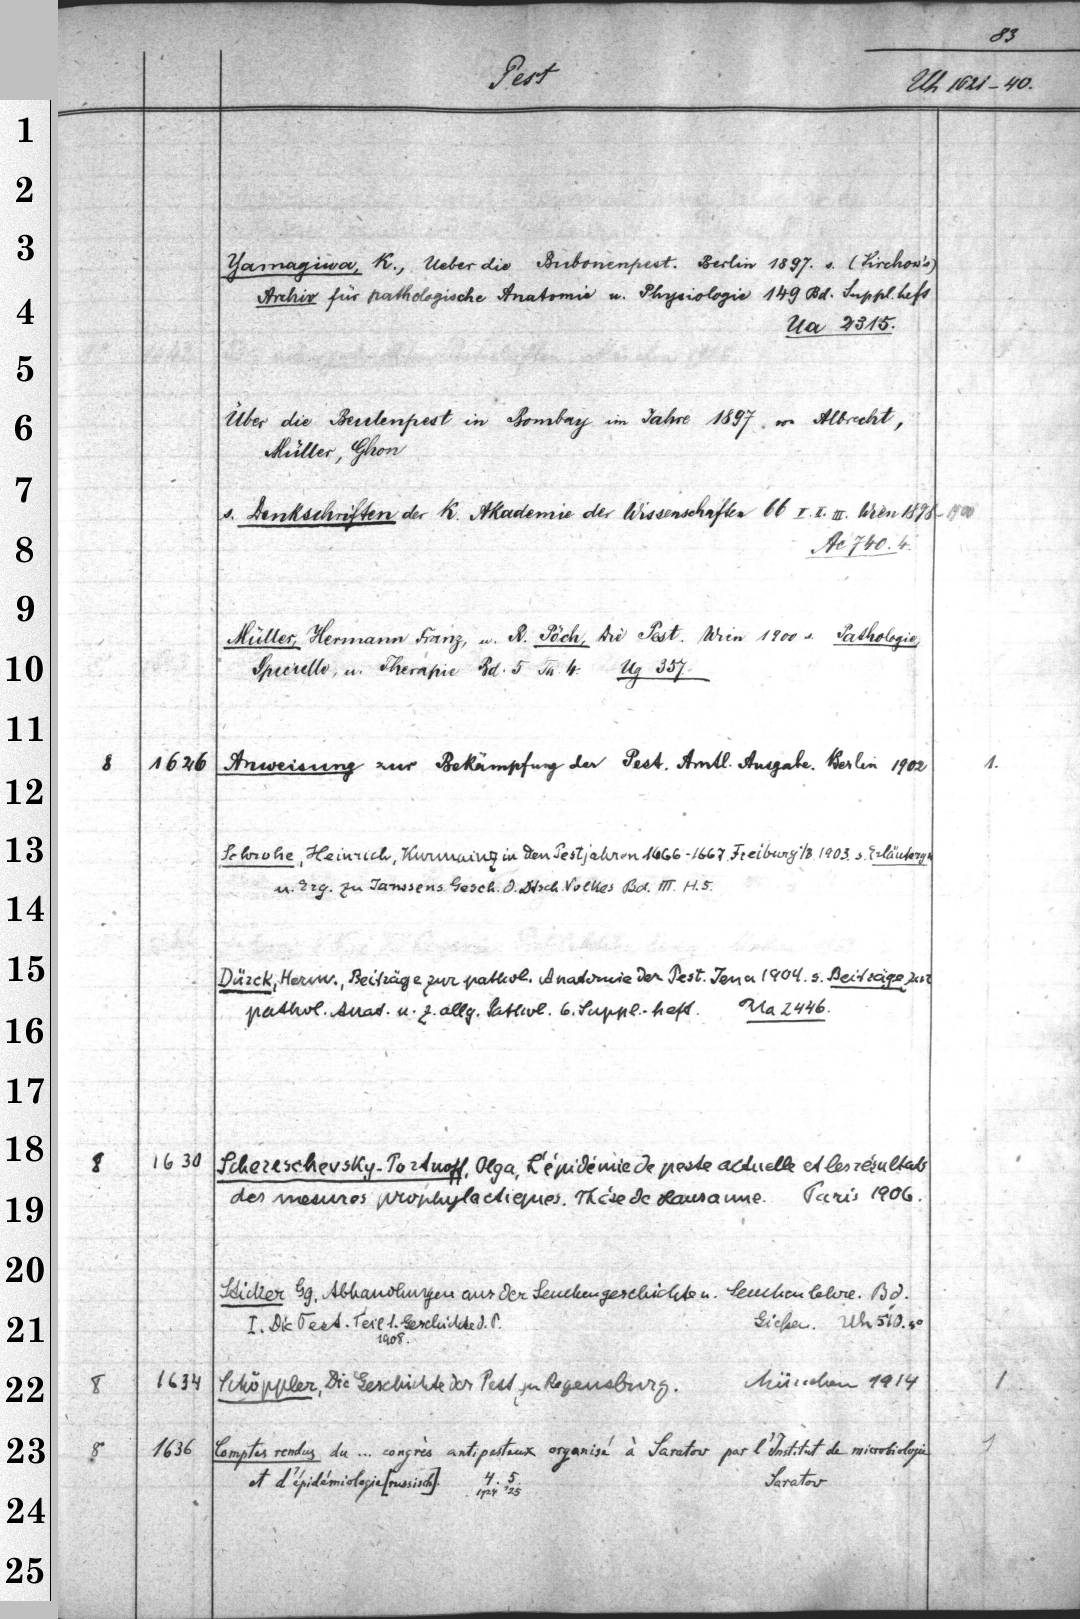 83
Pest
Uh 1621-40.
1
2
3
Yamagiwa, K., Ueber die Bubonenpest. Berlin 1897. s. (Virchow's)
Archiv für pathologische Anatomie u. Physiologie 149 Bd. Suppl. heft
4
Ua 2315.
5
6
Über die Beulenpest in Bombay im Jahre 1897 von Albrecht,
Müller, Ghon
7
s. Denkschriften der K. Akademie der Wissenschaften 66 I. II. III. Wien 1898-1900
8
Ac 740. 4.
9
Müller, Hermann Franz, u. R. Pöch, Die Pest. Wien 1900 s. Pathologie,
10
Specielle, u. Therapie Bd. 5 Th. 4. Ug 357.
11
8 1626 Anweisung zur Bekämpfung der Pest. Amtl. Ausgabe. Berlin 1902 1.
12
13
Schrohe, Heinrich, Kurmainz in den Pestjahren 1666-1667. Freiburg i/B. 1903. s. Erläutergn
u. Erg. zu Janssens Gesch. d. Dtsch. Volkes Bd. III. H. 5.
14
15
Dürck, Herm., Beiträge zur pathol. Anatomie der Pest. Jena 1904. s. Beiträge zur
16
pathol. Anat. u. z. allg. Pathol. 6. Suppl.-heft. Ua 2446.
17
18
8 1630 Schereschevsky-Portnoff, Olga, L'épidémie de peste actuelle et les résultats
19
des mesures prophylactiques. Thèse de Lausanne. Paris 1906.
20
Sticker Gg. Abhandlungen aus der Seuchengeschichte u. Seuchenlehre. Bd.
21
I. Die Pest. Teil 1. Geschichte d. P. Gießen. Uh 510.
1908.
22
8 1634 Schöppler, Die Geschichte der Pest zu Regensburg. München 1914 1
23
8 1636 Comptes rendus du ... congrès antipesteux organisé à Saratov par l'Institut de microbiologie 1
et d'épidémiologie [russisch]. 4. 5. Saratov
1924 '25
24
25